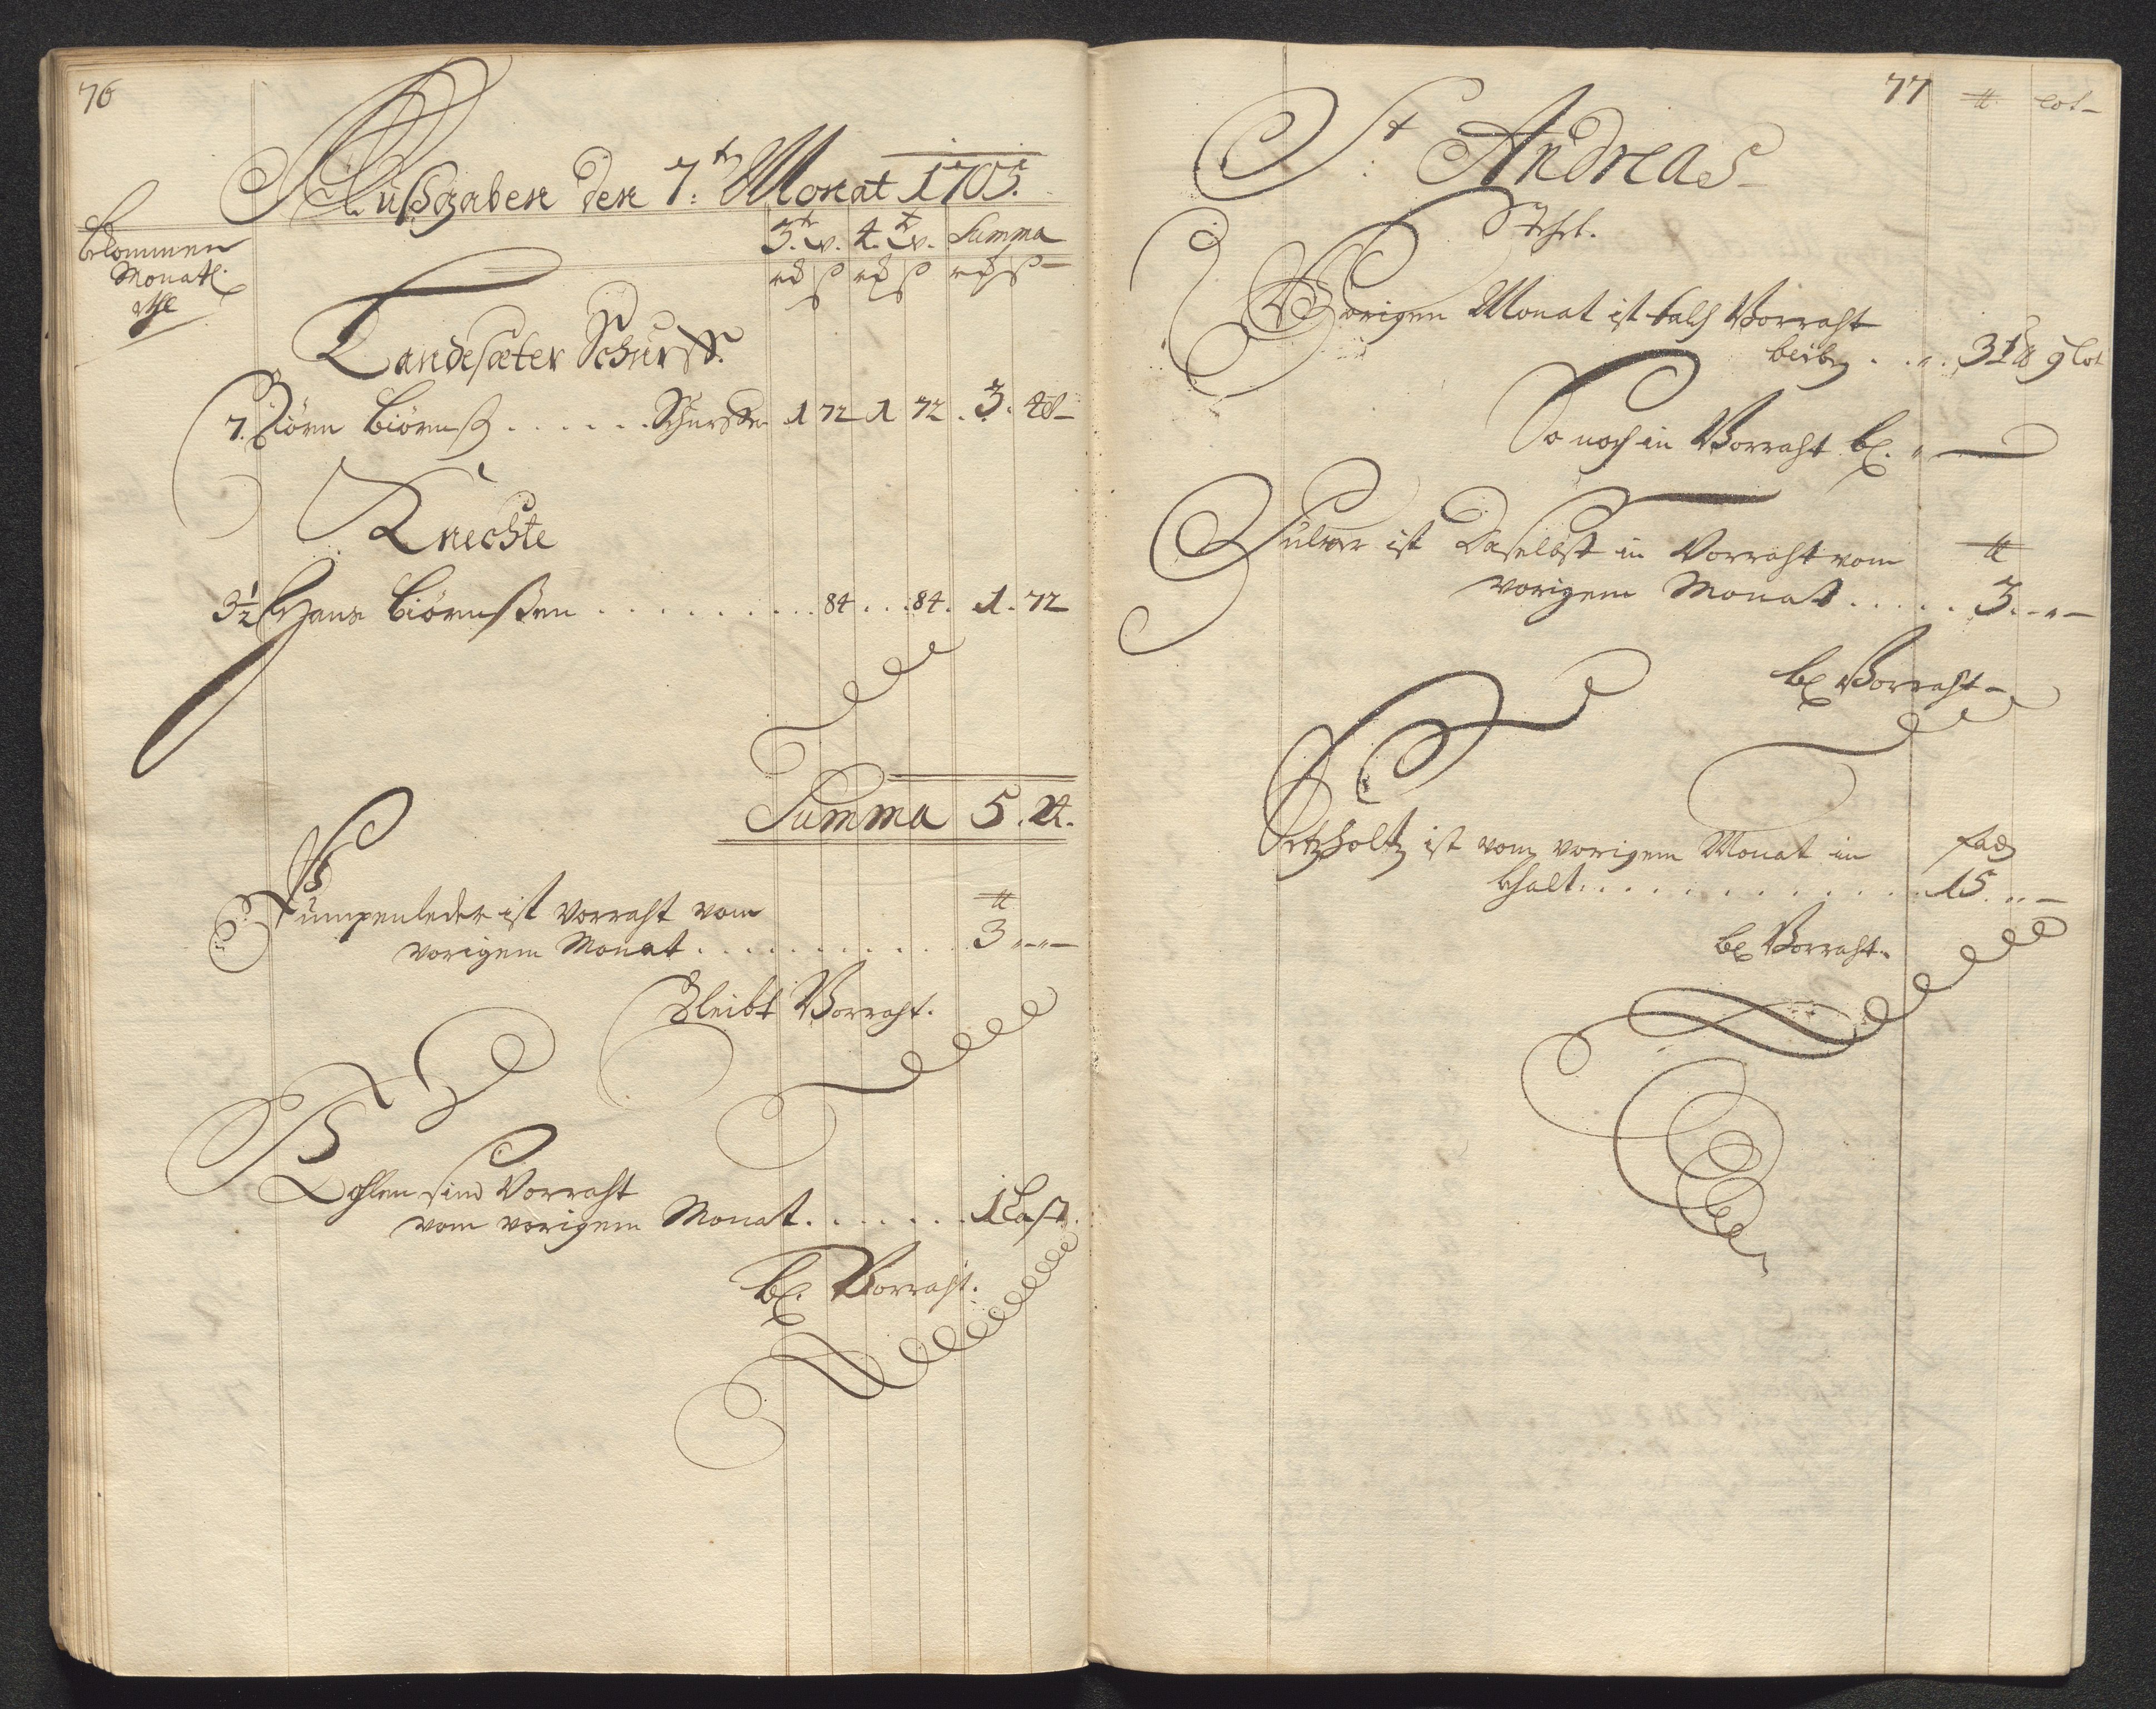 76
Außgaben den 7.te Monat 1705.
bekommen
Monatl.
3.te w. 4.te w. Summa
rd ß rd ß rd ß
Landesæter Schurff.
7. Biörn Biörnß ...... Schurffer 1 72 1 72 . 3. 48
Knechte
3½ Hans Biörnßen .......... 84 ... 84. 1. 72
Summa 5. 24.
Pumpenleder ist Vorraht vom
℔
vorigem Monat ........... 3 „ —
Bleibt Vorraht.
Kohlen sind Vorraht
vom vorigem Monat ....... 1 Last.
bl. Vorraht.
77
℔ Lot
St Andreas
Vorigen Monat ist talch Vorraht
31 ℔ 9 Lot
So noch in Vorraht bl. „ —
Pulver ist Daselbst in Vorraht vom
℔
vorigem Monat ..... 3. „ —
bl Vorraht
Setzholtz ist vom vorigem Monat in
fad
bhalt ............ 15 „ —
bl Vorraht.